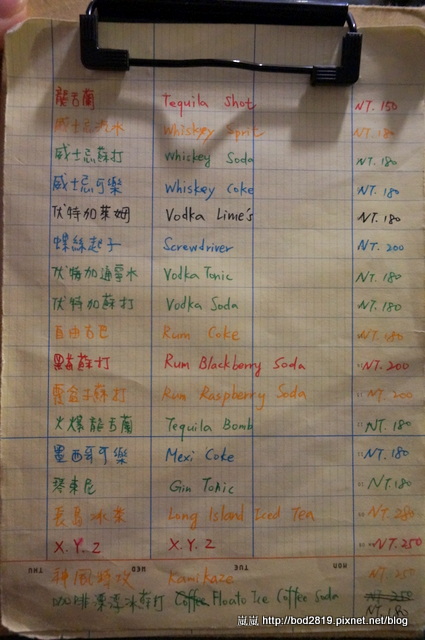 龍舌蘭 Tequila Shot NT. 150
威士忌汽水 Whiskey Sprit NT. 180
威士忌蘇打 Whiskey Soda NT. 180
威士忌可樂 Whiskey Coke NT. 180
伏特加萊姆 Vodka Lime's NT. 180
螺絲起子 Screwdriver NT. 200
伏特加通寧水 Vodka Tonic NT. 180
伏特加蘇打 Vodka Soda NT. 180
自由古巴 Rum Coke NT. 180
黑莓蘇打 Rum Blackberry Soda NT. 200
覆盆子蘇打 Rum Raspberry Soda NT. 200
火爆龍舌蘭 Tequila Bomb NT. 180
墨西哥可樂 Mexi Coke NT. 180
琴東尼 Gin Tonic NT. 180
長島冰茶 Long Island Iced Tea NT. 280
X.Y.Z X.Y.Z NT. 250
THU WED TUE MON
神風特攻 Kamikaze NT. 250
咖啡漂浮冰蘇打 Coffee Floato Ice Coffee Soda NT. 180
嵐嵐,http://bod2819.pixnet.net/blog